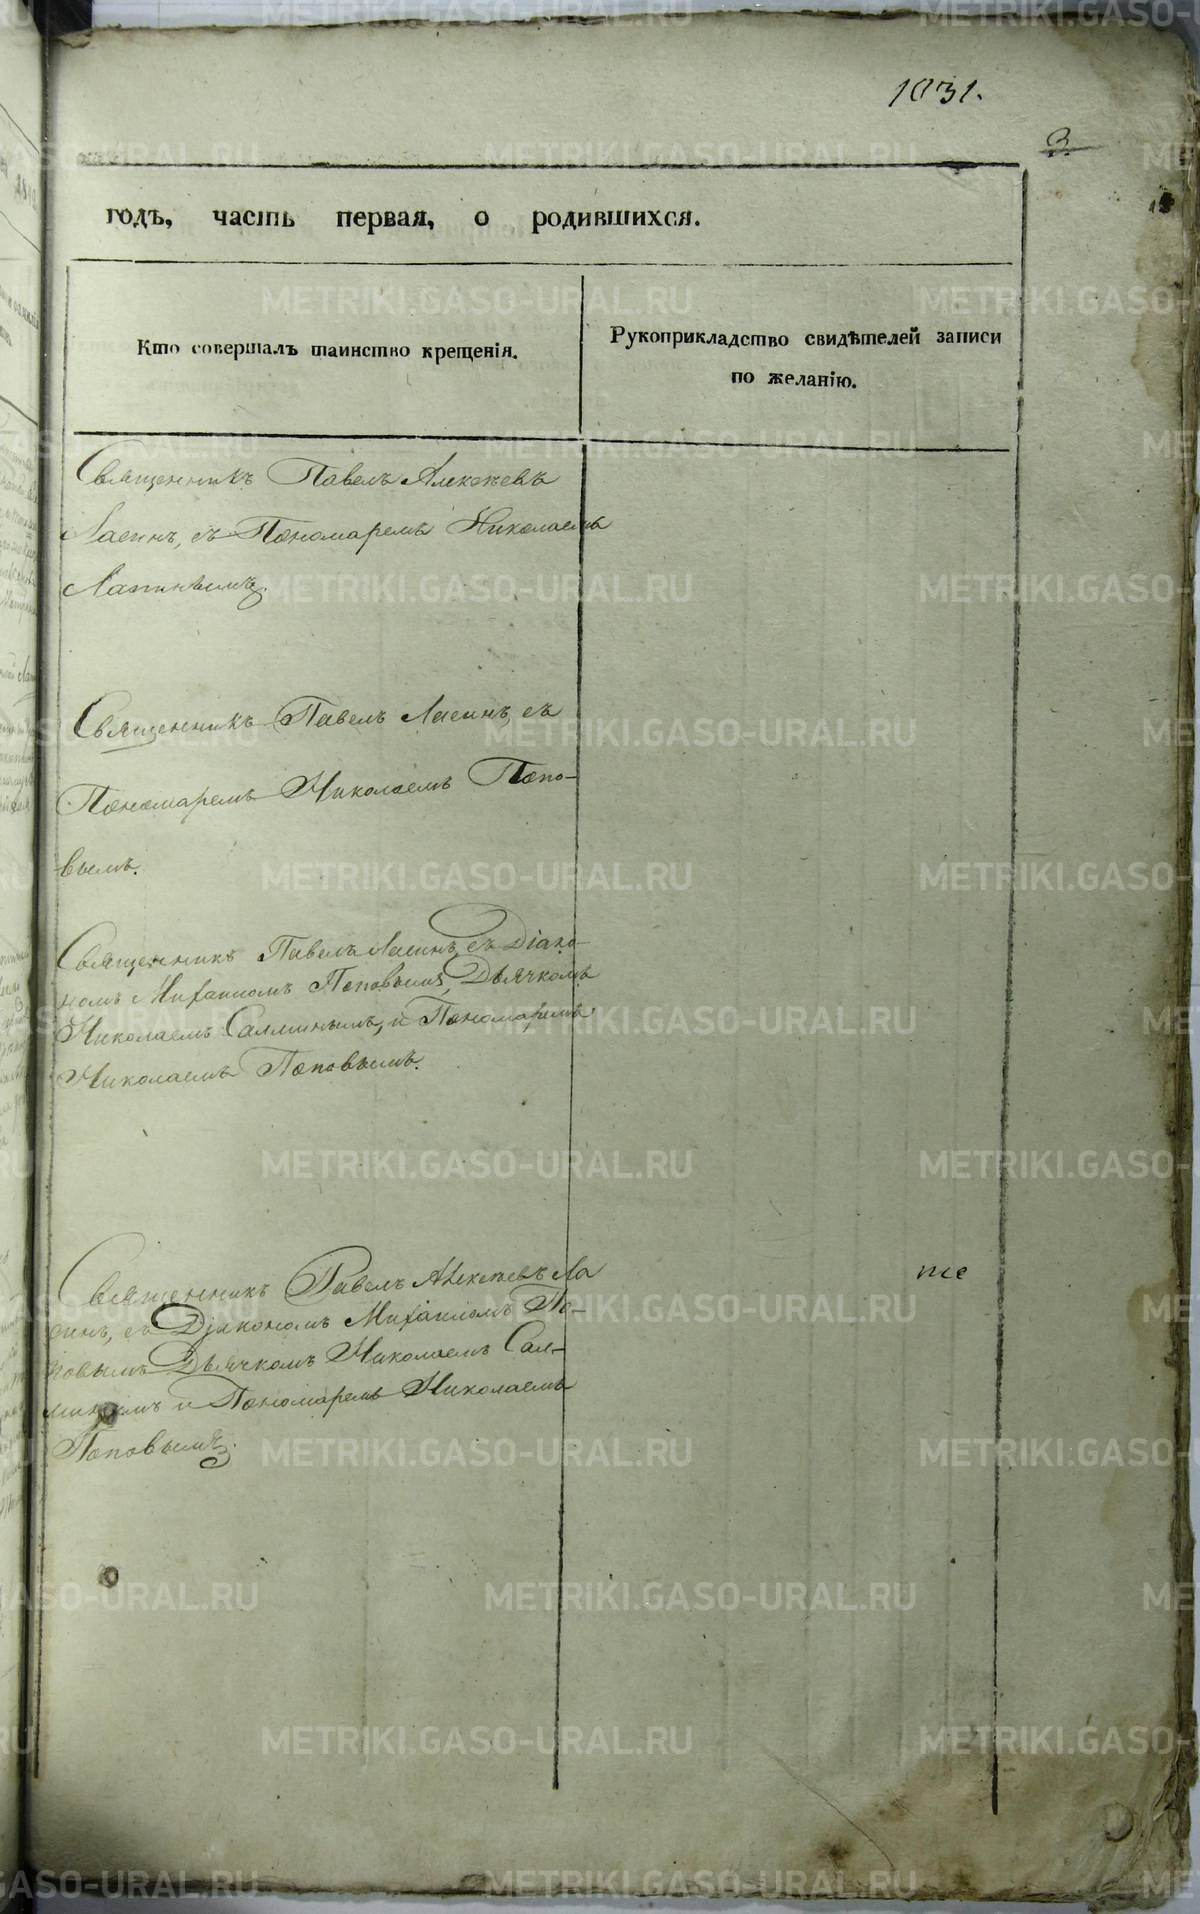 1031.
3
годъ, часть первая, о родившихся.
Кто совершалъ таинство крещенія.
Рукоприкладство свидѣтелей записи
по желанію.
Священникъ Павелъ Алексѣевъ
Ласинъ, съ Пономаремъ Николаемъ
Священникъ Павелъ Ласинъ, съ
Пономаремъ Николаемъ Попо-
вымъ.
Священникъ Павелъ Ласинъ, съ Діако-
номъ Михаиломъ Поповымъ, Дьячкомъ
Николаемъ Салминымъ, и Пономаремъ
Николаемъ Поповымъ.
Священникъ Павелъ Алексѣевъ Ла
синъ, съ Діакономъ Михаиломъ По-
повымъ Дьячкомъ Николаемъ Сал-
минымъ и Пономаремъ Николаемъ
Поповымъ.
METRIKI.GASO-URAL.RU